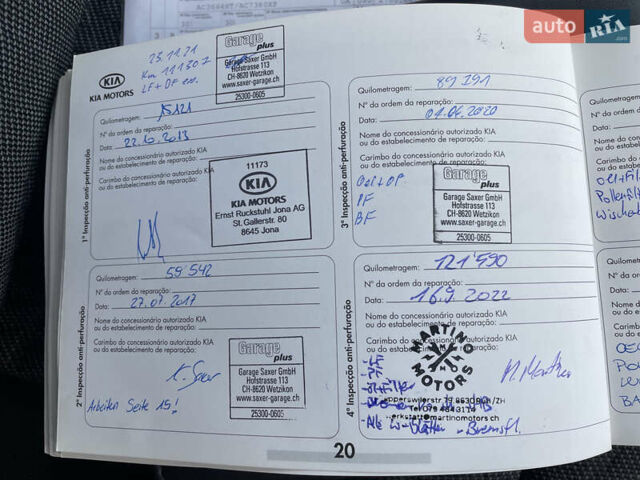 AC7366KT/AC7380XF
auto RIA.com
23.11.21
Km 111307
LF+DF ers.
Garage plus
Garage Saxer GmbH
Hofstrasse 113
CH-8620 Wetzikon
www.saxer-garage.ch
25300-0605
KIA
KIA MOTORS
1ª Inspecção anti-perfuração
Quilometragem: 15121
Nº da ordem da reparação:
Data: 22.10.2013
Nome do concessionário autorizado KIA
ou do estabelecimento de reparação:
Carimbo do concessionário autorizado KIA
ou do estabelecimento de reparação:
11173
KIA
KIA MOTORS
Ernst Ruckstuhl Jona AG
St. Gallerstr. 80
8645 Jona
2ª Inspecção anti-perfuração
Quilometragem: 59 542
Nº da ordem da reparação:
Data: 27.07.2017
Nome do concessionário autorizado KIA
ou do estabelecimento de reparação:
Carimbo do concessionário autorizado KIA
ou do estabelecimento de reparação:
Garage plus
Garage Saxer GmbH
Hofstrasse 113
CH-8620 Wetzikon
www.saxer-garage.ch
25300-0605
Arbeiten Seite 15!
3ª Inspecção anti-perfuração
Quilometragem: 89 191
Nº da ordem da reparação:
Data: 04.06.2020
Nome do concessionário autorizado KIA
ou do estabelecimento de reparação:
Carimbo do concessionário autorizado KIA
ou do estabelecimento de reparação:
Oel+OF
PF
BF
Garage plus
Garage Saxer GmbH
Hofstrasse 113
CH-8620 Wetzikon
www.saxer-garage.ch
25300-0605
4ª Inspecção anti-perfuração
Quilometragem: 121 990
Nº da ordem da reparação:
Data: 16.9.2022
Nome do concessionário autorizado KIA
ou do estabelecimento de reparação:
Carimbo do concessionário autorizado KIA
ou do estabelecimento de reparação:
MARTINO MOTORS
-LF
-PF
- Bremsfl.
20
Oel+Fil
Pollenfilt